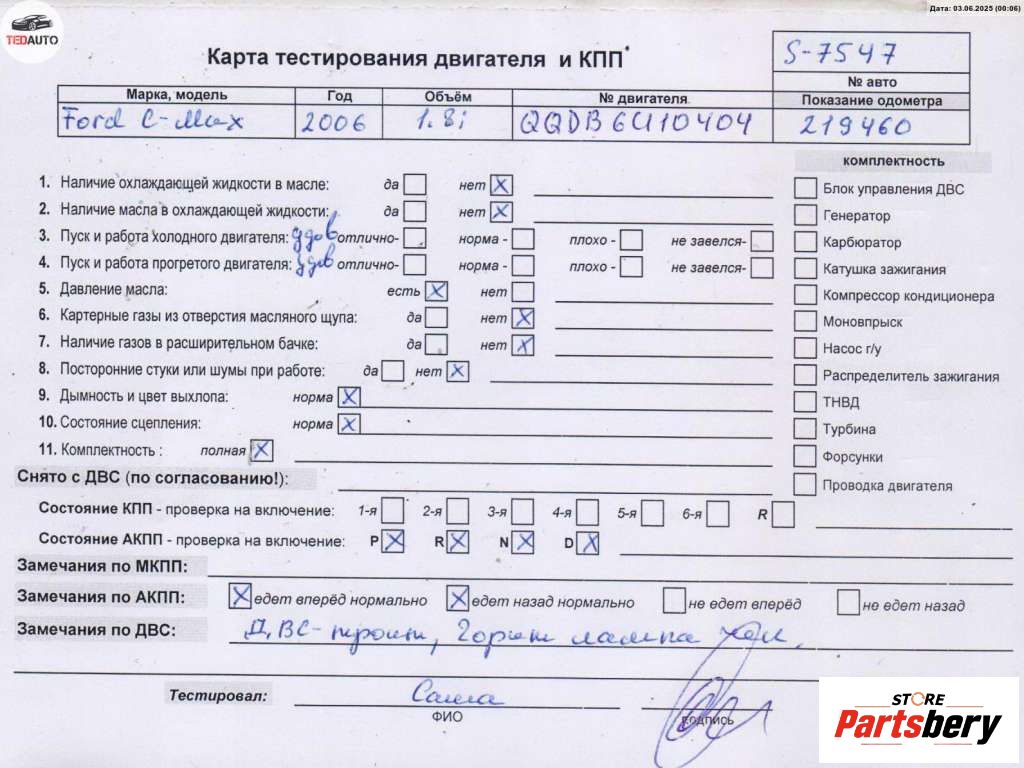 Дата: 03.06.2025 (00:06)
TEDAUTO
Карта тестирования двигателя и КПП*
S-7547
№ авто
Марка, модель Год Объём № двигателя Показание одометра
Ford C-Max 2006 1.8i QQDB6U10404 219460
комплектность
1. Наличие охлаждающей жидкости в масле: да нет X
Блок управления ДВС
2. Наличие масла в охлаждающей жидкости: да нет X
Генератор
3. Пуск и работа холодного двигателя: удов отлично- норма - плохо - не завелся-
Карбюратор
4. Пуск и работа прогретого двигателя: удов отлично- норма - плохо - не завелся-
Катушка зажигания
5. Давление масла: есть X нет
Компрессор кондиционера
6. Картерные газы из отверстия масляного щупа: да нет X
Моновпрыск
7. Наличие газов в расширительном бачке: да нет X
Насос г/у
8. Посторонние стуки или шумы при работе: да нет X
Распределитель зажигания
9. Дымность и цвет выхлопа: норма X
ТНВД
10. Состояние сцепления: норма X
Турбина
11. Комплектность : полная X
Форсунки
Снято с ДВС (по согласованию!):
Проводка двигателя
Состояние КПП - проверка на включение: 1-я 2-я 3-я 4-я 5-я 6-я R
Состояние АКПП - проверка на включение: P X R X N X D X
Замечания по МКПП:
Замечания по АКПП: X едет вперёд нормально X едет назад нормально не едет вперёд не едет назад
Замечания по ДВС: ДВС-троит, горит лампа
Тестировал: Саша
ФИО подпись
STORE
Partsbery